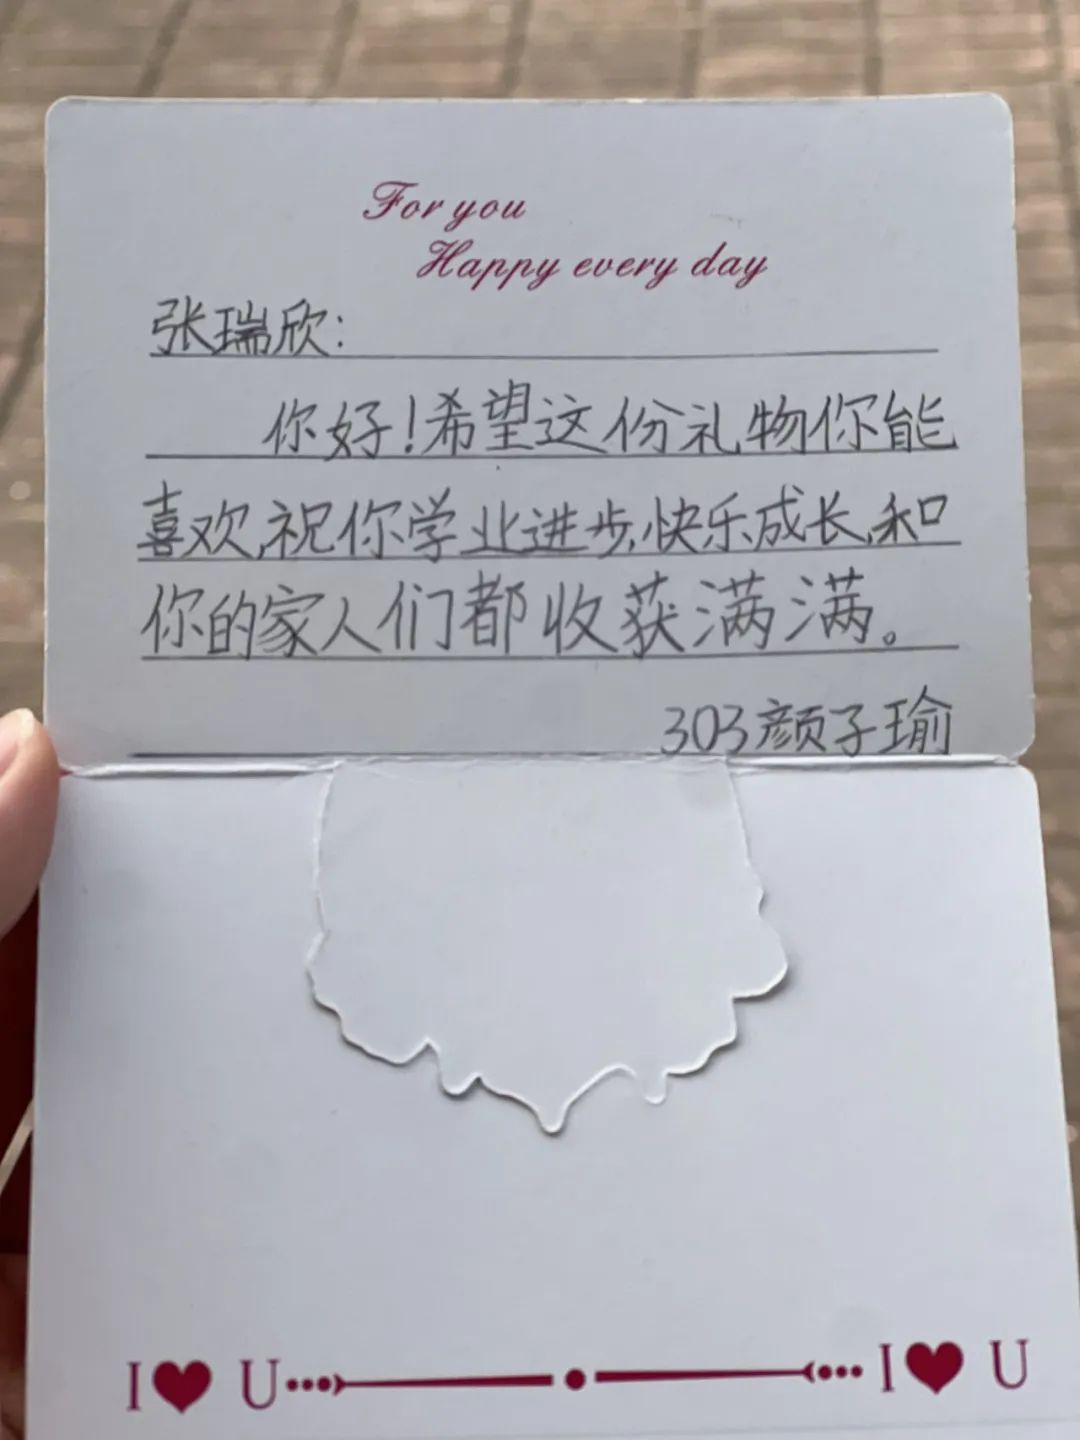 For you
Happy every day
张瑞欣:
你好!希望这份礼物你能
喜欢,祝你学业进步,快乐成长,和
你的家人们都收获满满。
303颜子瑜
I♥U I♥U